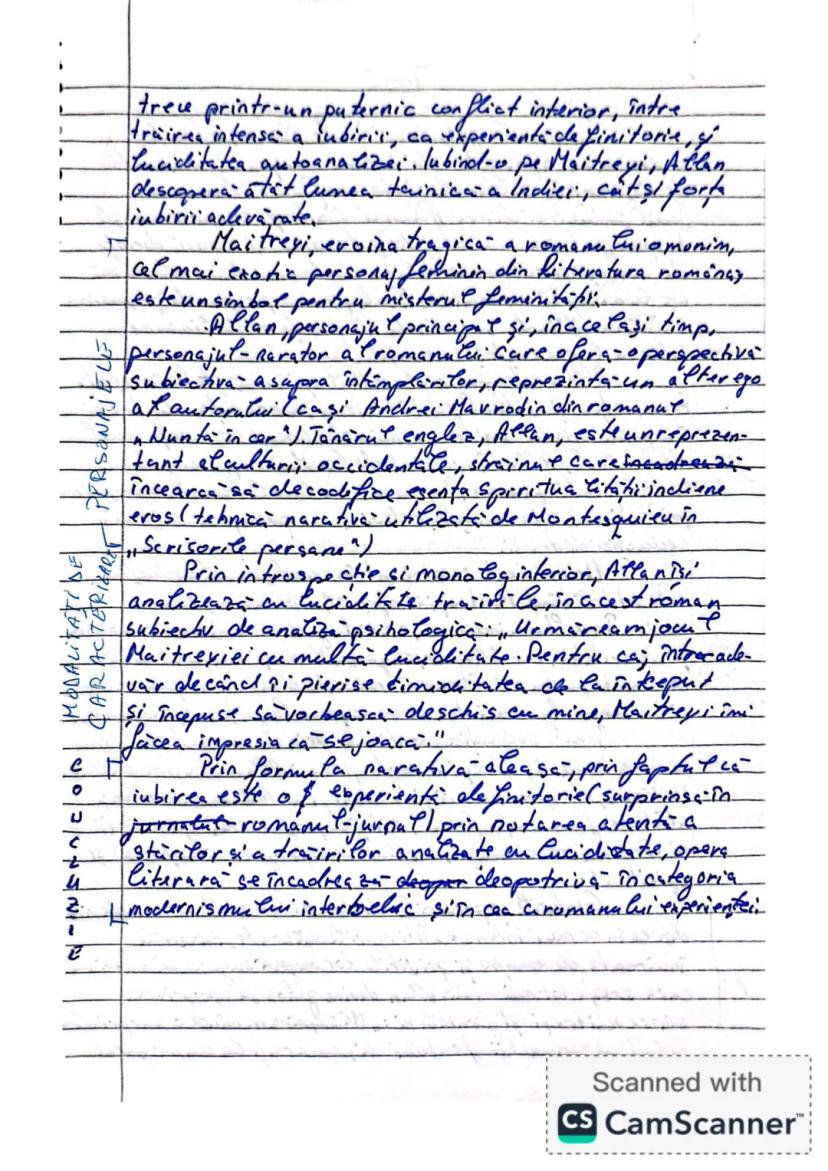 trece printr-un puternic conflict interior, între
trăirea intensă a iubirii, ca experiență definitorie, și
luciditatea autoanalizei. Iubind-o pe Maitreyi, Allan
descoperă atât lumea tainică a Indiei, cât și forța
iubirii adevărate.
Maitreyi, eroina tragică a romanului omonim,
cel mai exotic personaj feminin din literatura română,
este un simbol pentru misterul feminității.
Allan, personajul principal și, în același timp,
personajul-narator al romanului care oferă o perspectivă
subiectivă asupra întâmplărilor, reprezintă un alter ego
al autorului (ca și Andrei Mavrodin din romanul
„Nuntă în cer"). Tânărul englez, Allan, este un reprezen-
tant al culturii occidentale, străinul care încadrează
încearcă să decodifice esența spiritualității indiene
eros (tehnică narativă utilizată de Montesquieu în
„Scrisorile persane")
Prin introspecție și monolog interior, Allan își
analizează cu luciditate trăirile, în acest roman
subiectiv de analiză psihologică: „Urmăream jocul
Maitreyiei cu multă luciditate. Pentru că, într-ade-
văr de când îi pierise timiditatea de la început
și începuse să vorbească deschis cu mine, Maitreyi îmi
făcea impresia că se joacă."
Prin formula narativă aleasă, prin faptul că
iubirea este o experiență definitorie (surprinsă în
jurnalul romanul-jurnal) prin notarea atentă a
stărilor și a trăirilor analizate cu luciditate, opera
literară se încadrează deopotrivă în categoria
modernismului interbelic și în cea a romanului experienței.
MODALITĂȚI DE
CARACTERIZARE
PERSONAJELE
CONCLUZIE
Scanned with
CS CamScanner™